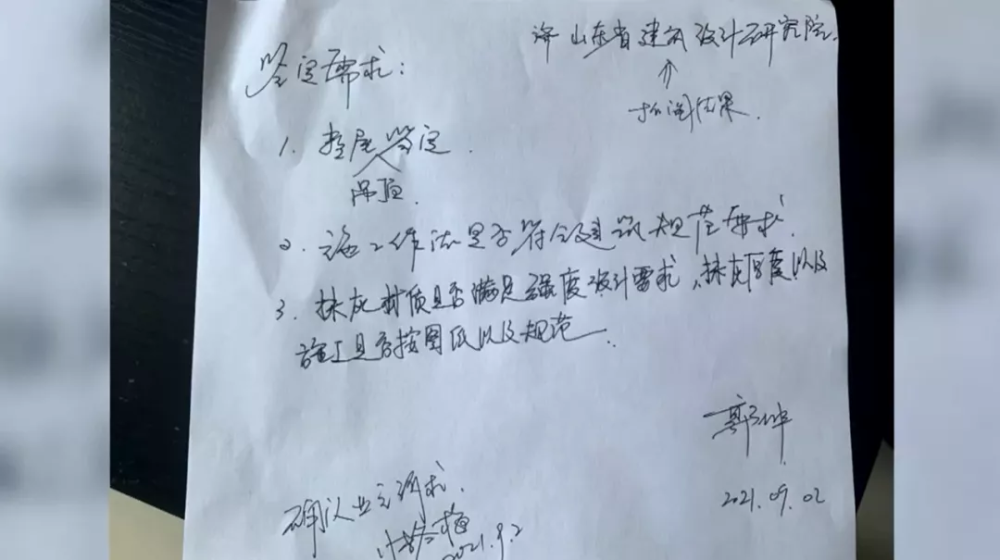 山东省建筑设计研究院.
鉴定需求:
抽阄结果.
1. 整屋鉴定.
吊顶.
2. 施工作法是否符合建筑规范要求.
3. 抹灰材质是否满足强度设计需求、抹灰厚度以及
施工是否按图纸以及规范.
2021.09.02
确认业主诉求.
2021.9.2